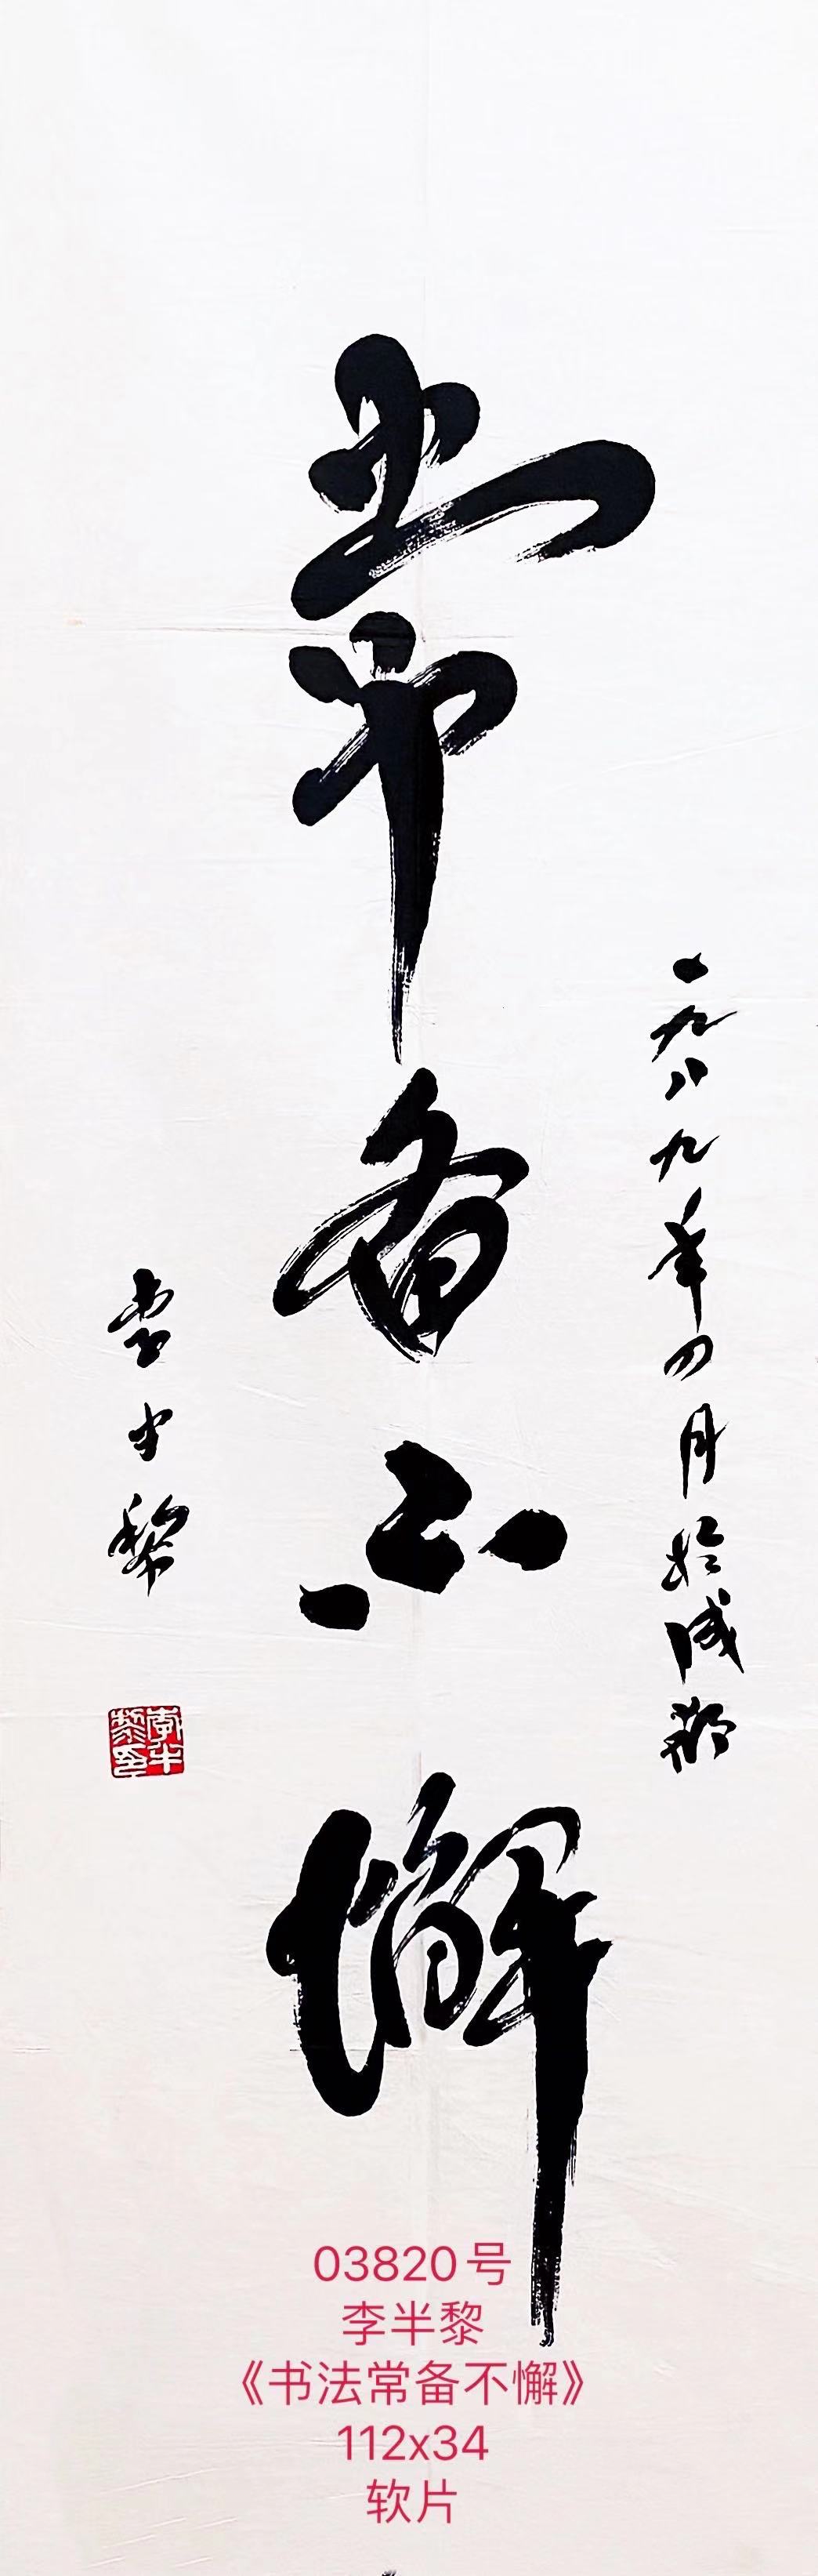 常备不懈
一九八九年四月於成都
李半黎
李半黎印
03820号
李半黎
《书法常备不懈》
112x34
软片